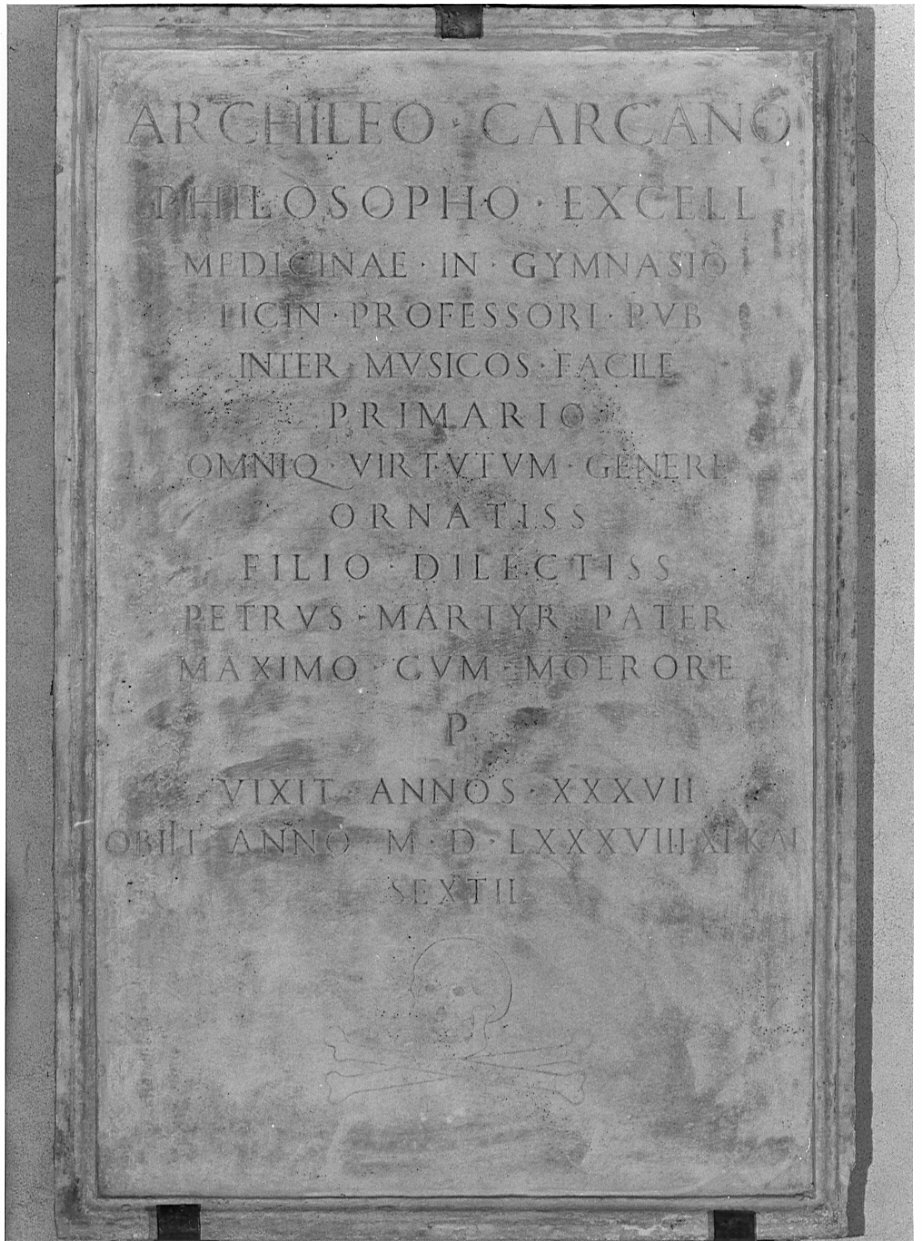 ARCHILEO · CARCANO
PHILOSOPHO · EXCELL
MEDICINAE · IN · GYMNASIO
TICIN · PROFESSORI · PVB
INTER · MVSICOS · FACILE
PRIMARIO
OMNIQ · VIRTVTVM · GENERE
ORNATISS
FILIO · DILECTISS
PETRVS · MARTYR · PATER
MAXIMO · CVM · MOERORE
P
VIXIT · ANNOS · XXXVII
OBIIT ANNO · M · D · LXXXVIII XI KAL
SEXTIL